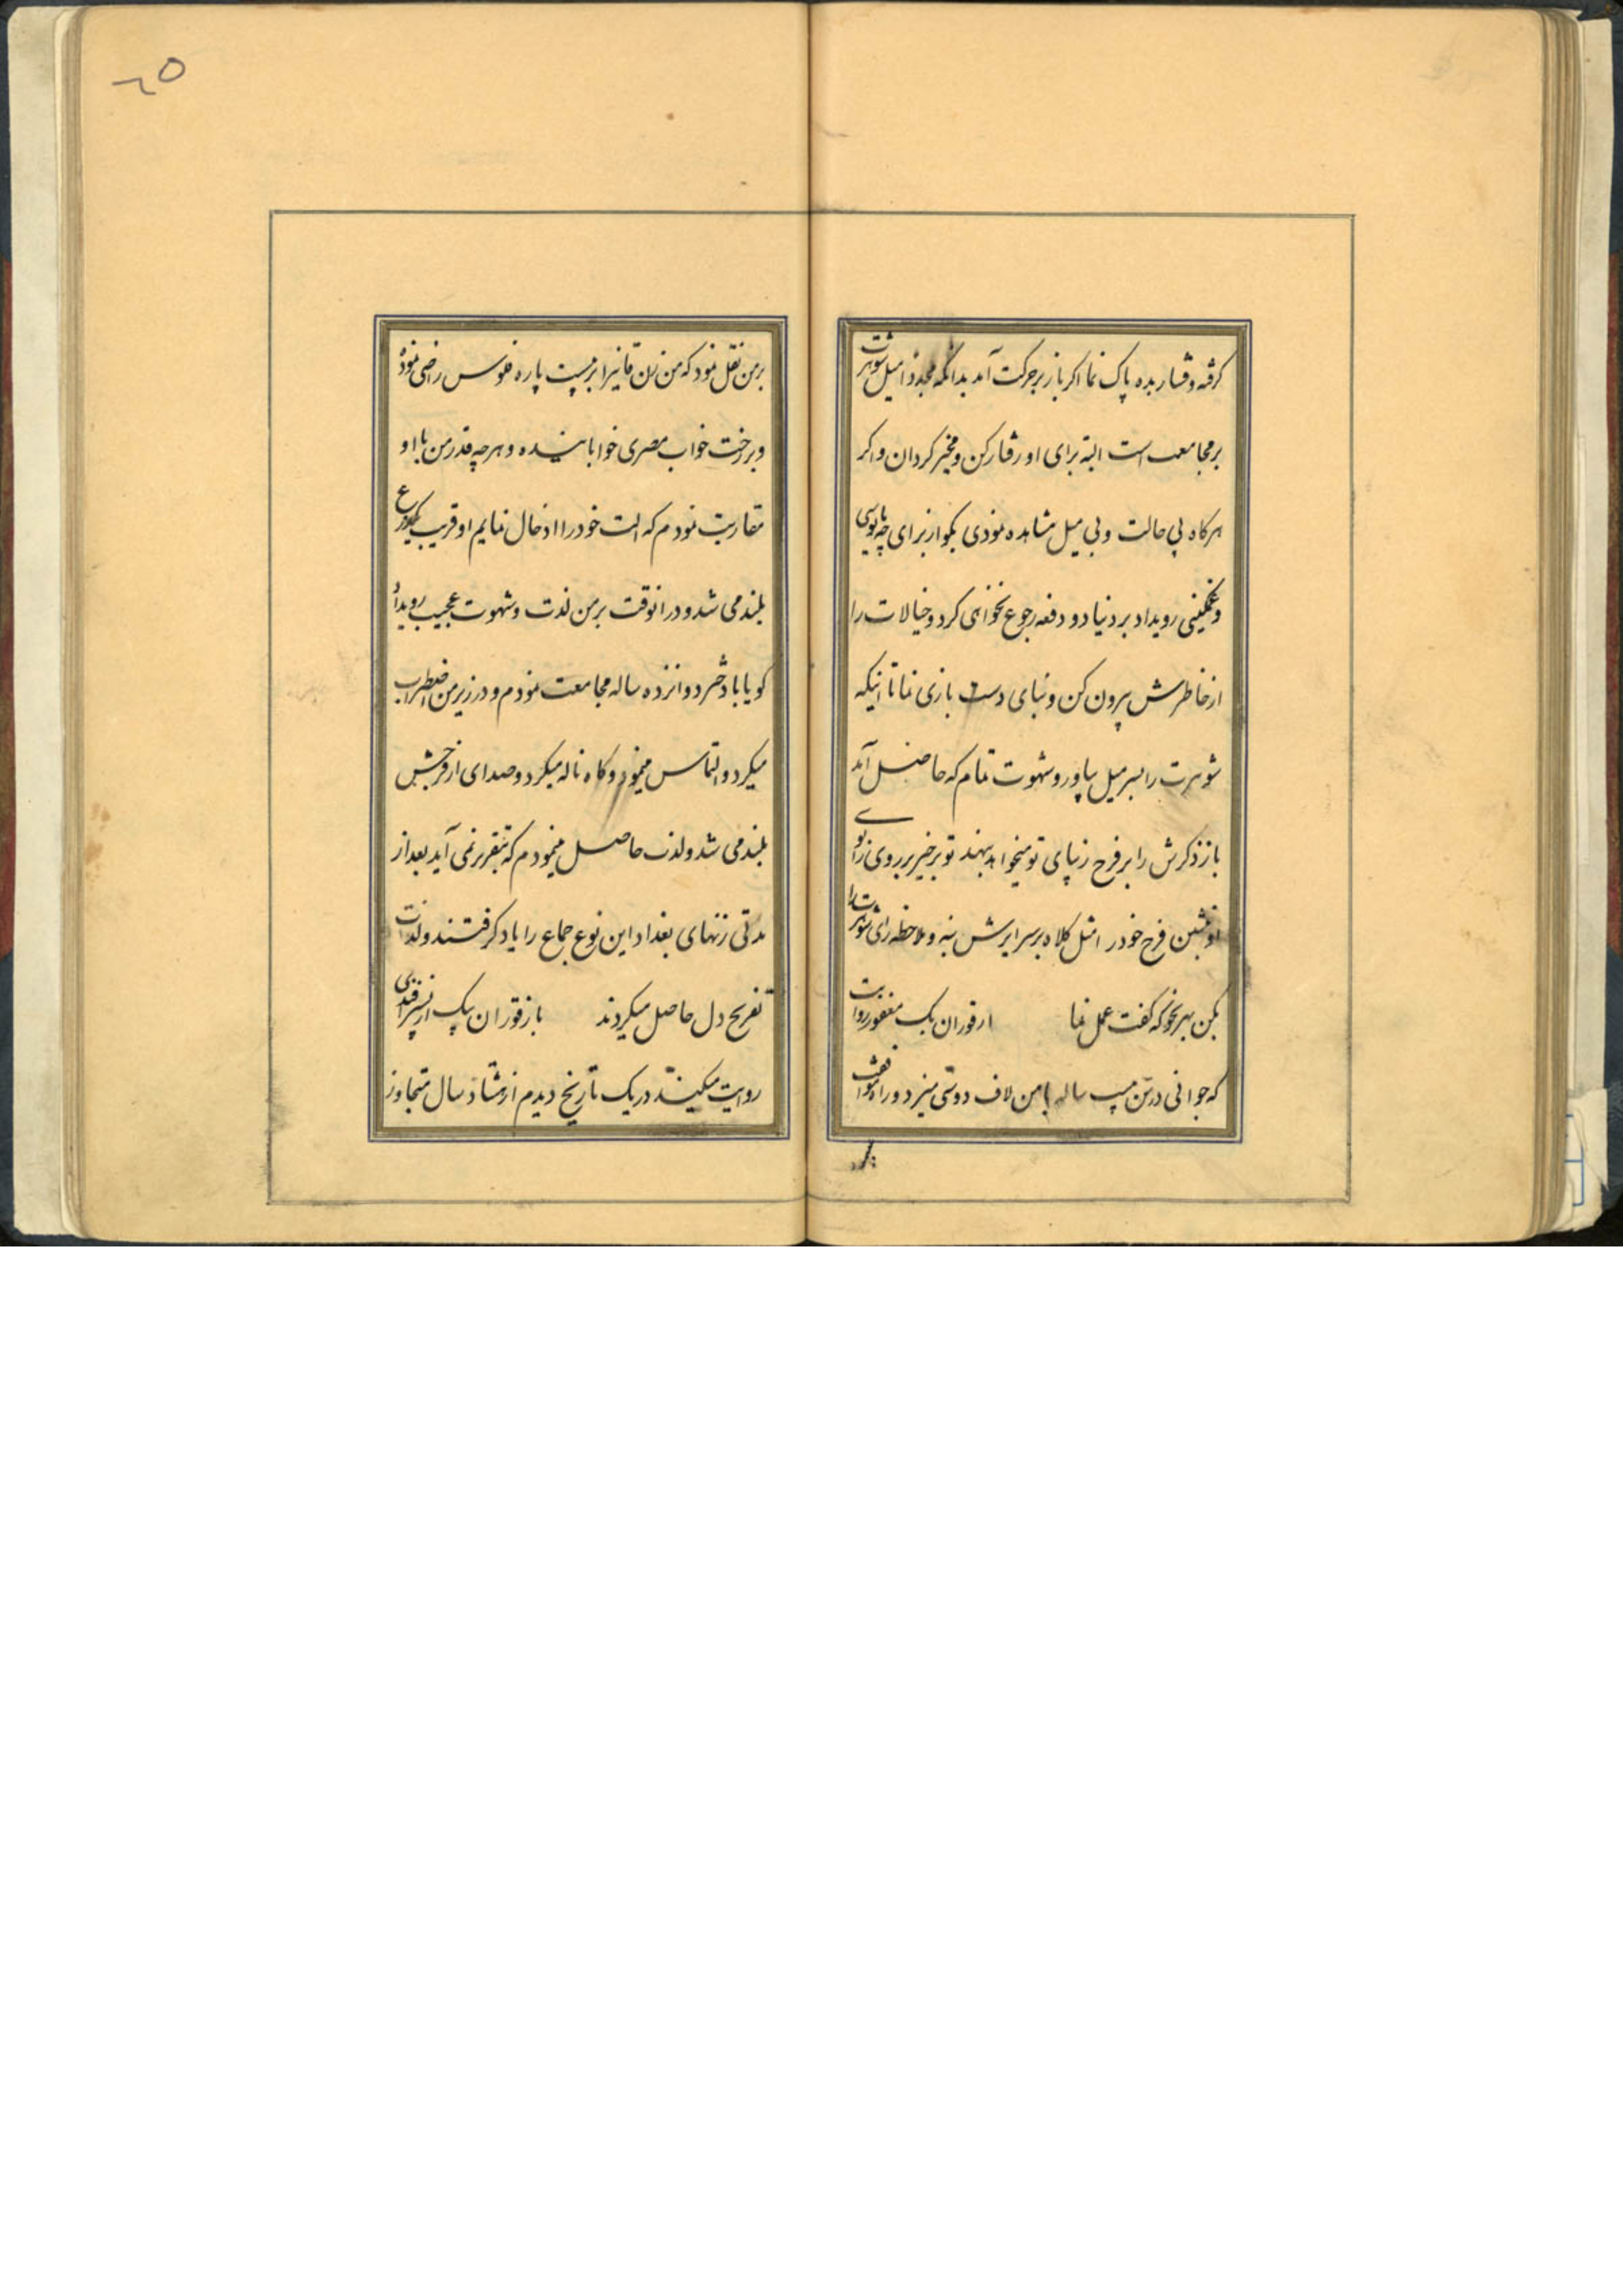 گرفته و فشار بده پاک نما اکر باز بر حرکت آمد بدانکه مجددا میل شوهرت
بر مجامعت است البته برای او رفتار کن و مخیر کردان و اکر
هرکاه بی حالت و بی میل مشاهده نمودی بکو از برای چه مایوسی
و غمکینی رویداد بر دنیا دو دفعه رجوع نخواهی کرد و خیالات را
از خاطرش بیرون کن و بنای دست بازی نما تا انیکه
شوهرت را بسر میل بیاور و شهوت تمام که حاصل آمد
باز ذکرش را بر فرج زیبای تو میخواهد بنهد تو برخیز بر روی زانوی
او بنشین فرج خود را مثل کلاه بر سر ایرش بنه و ملاحظه رای شوهرت را
بکن بهر نحو که کفت عمل نما از قوران بک مغفور روایت
که جوانی در سن بیست ساله با من لاف دوستی میزد و راه موافقت
بر من نقل نمود که من زن را بر بیست پاره فلوس راضی نموده
و بر رخت خواب مصری خوابانیده و هر چه قدر من با او
مقاربت نمودم که الت خود را ادخال نمایم او قریب یکذرع
بلند می شد و در انوقت بر من لذت و شهوت عجیب رویداد
میکرد و التماس مینمود و کاه ناله میکرد و صدای از فرجش
بلند می شد و لذت حاصل مینمودم که بتقریر نمی آید بعد از
مدتی زنهای بغداد این نوع جماع را یاد کرفتند و لذت
تفریح دل حاصل میکردند باز قوران بیک از
روایت میکند در یک تاریخ دیدم از هشتاد سال متجاوز